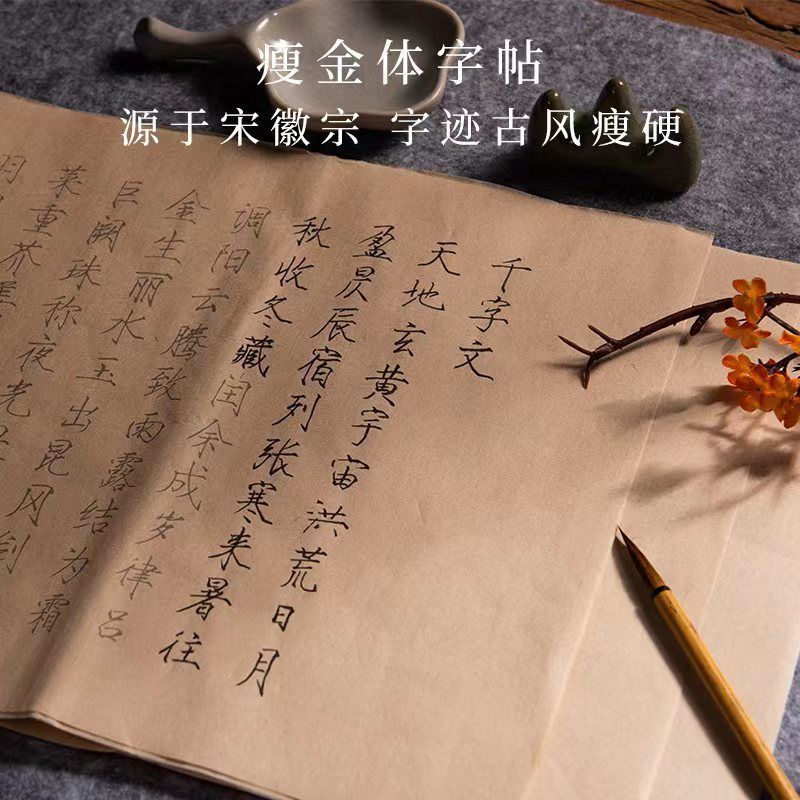 瘦金体字帖
源于宋徽宗 字迹古风瘦硬
千字文
天地玄黄宇宙洪荒日月
盈昃辰宿列张寒来暑往
秋收冬藏闰余成岁律吕
调阳云腾致雨露结为霜
金生丽水玉出昆冈剑
巨阙珠称夜光
菜重芥